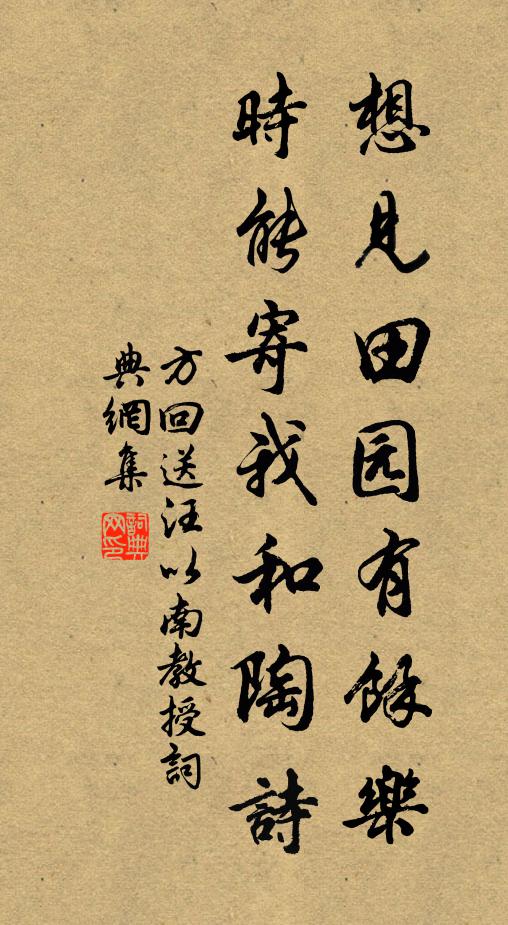 想見田园有餘樂
時能寄我和陶詩
方回送汪以南教授詞
典網集
詞典
网印